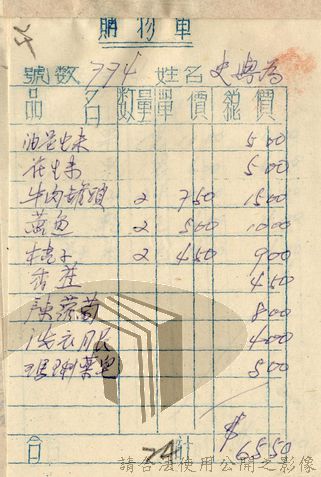 購物單
號数 774 姓名 史與為
品名 数量 單價 總價
油花生米 500
花生米 500
牛肉罐頭 2 750 1500
燻魚 2 500 1000
桔子 2 450 900
450
陳葡萄 800
洗衣肥皂 400
500
合計 $6550
24
請合法使用公開之影像